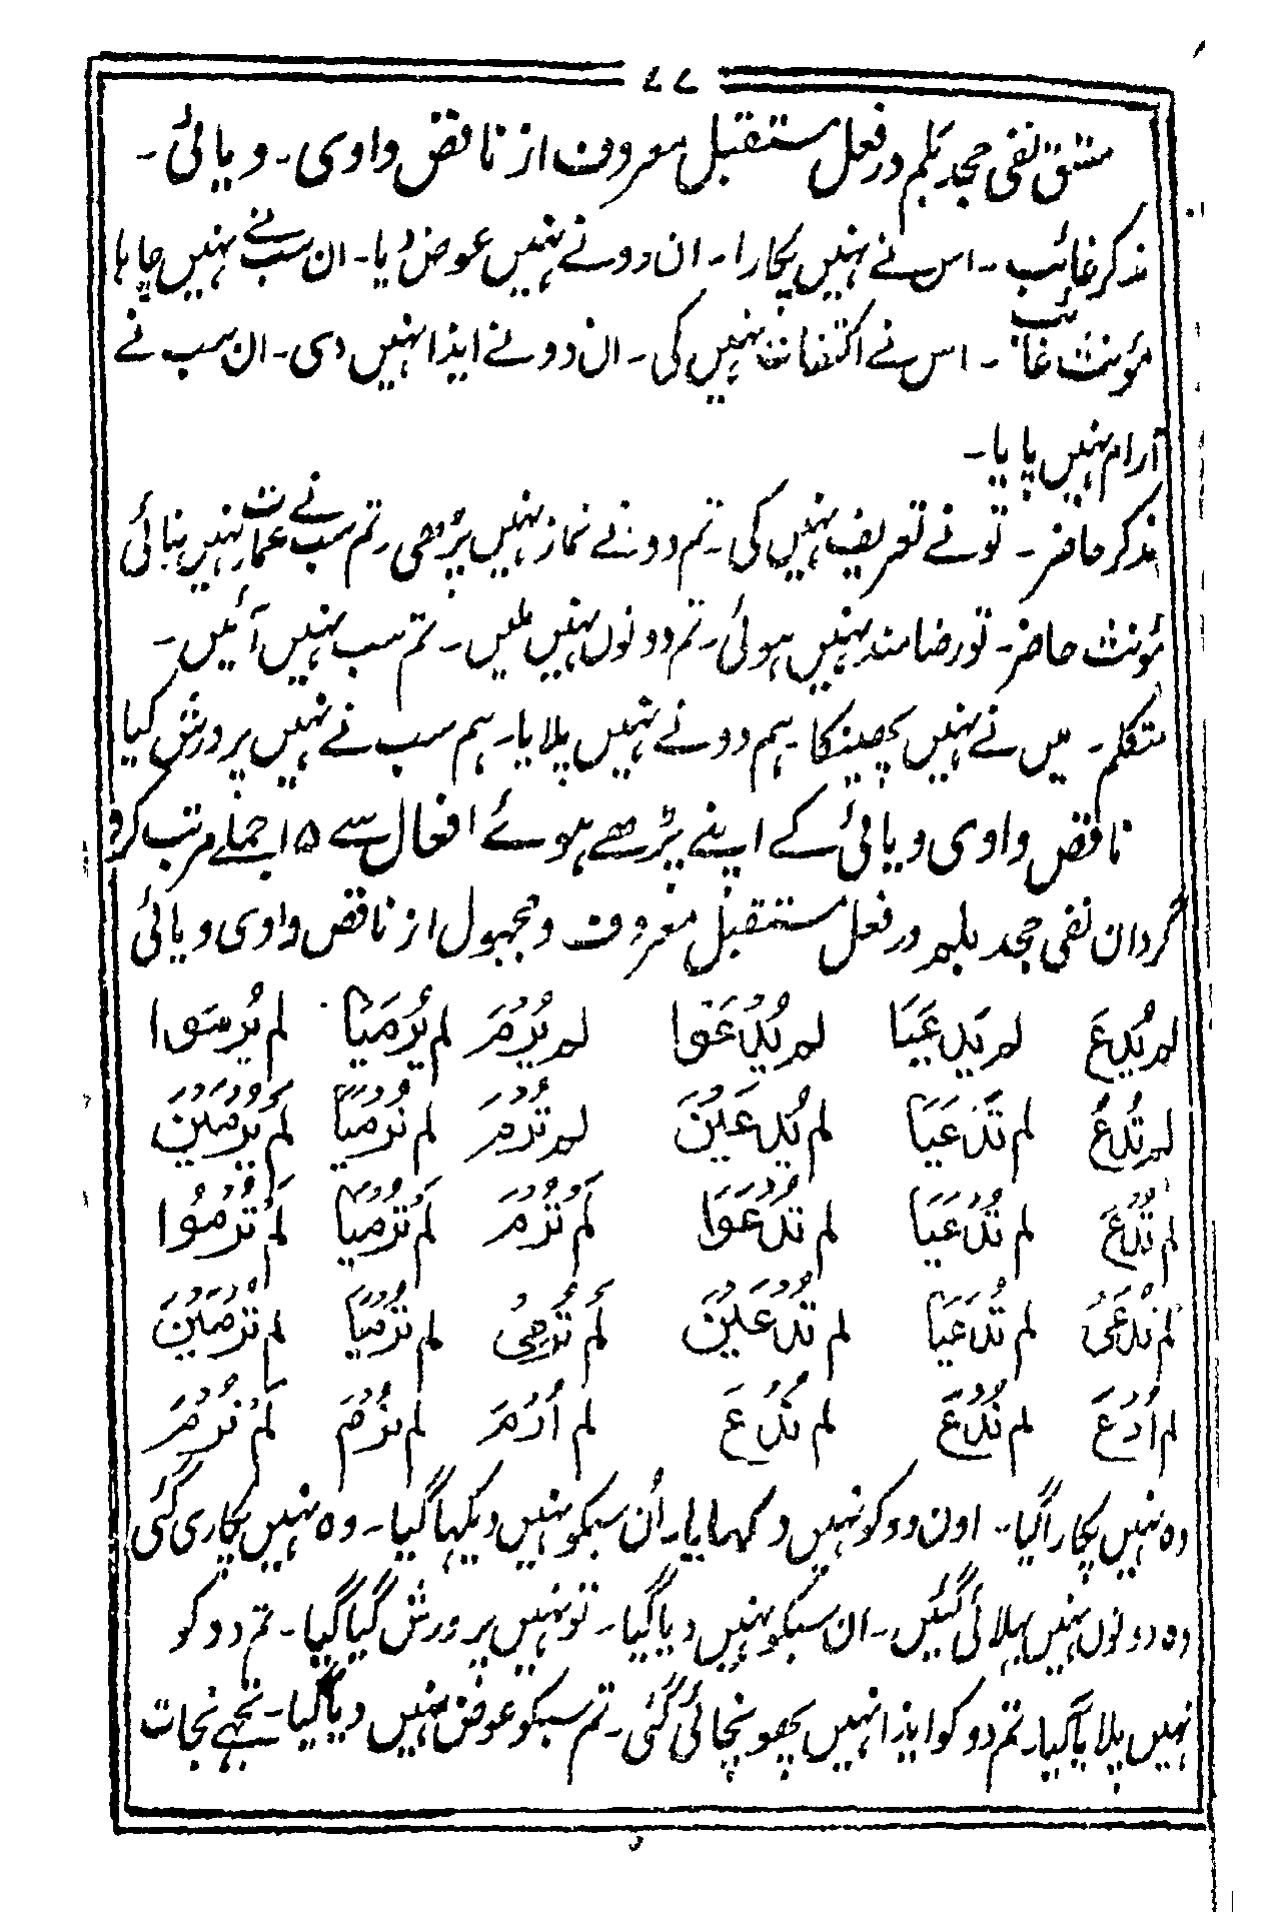 ۷۷
مشق نفی جحد بلم در فعل مستقبل معروف از ناقص واوی۔ ویائی۔
مذکر غائب۔ اس نے نہیں پکارا۔ ان دو نے نہیں عوض دیا۔ ان سب نے نہیں چاہا
مؤنث غائب۔ اس نے اکتفا نہیں کی۔ ان دو نے ایذا نہیں دی۔ ان سب نے
آرام نہیں پایا۔
مذکر حاضر۔ تو نے تعریف نہیں کی۔ تم دو نے نماز نہیں پڑھی۔ تم سب نے عمارت نہیں بنائی
مؤنث حاضر۔ تو رضامند نہیں ہوئی۔ تم دونوں نہیں ملیں۔ تم سب نہیں آئیں۔
متکلم۔ میں نے نہیں پھینکا۔ ہم دو نے نہیں پلایا۔ ہم سب نے نہیں پرورش کیا
ناقص واوی ویائی کے اپنے پڑھے ہوئے افعال سے ۱۵ جملے مرتب کرو
گردان نفی جحد بلم در فعل مستقبل معروف و مجہول از ناقص واوی ویائی
لم یُدْعَ لم یُدعَیَا لم یُدْعَوا لم یُرْمَ لم یُرْمَیَا لم یُرمَوا
لم تُدْعَ لم تُدْعَیَا لم یُدعَیْنَ لم تُرْمَ لم تُرْمَیَا لَمْ یُرْمَیْنَ
لم تُدْعَ لم تُدْعَیَا لم تُدْعَوَا لَمْ تُرْمَ لَمْ تُرْمَیَا لَمْ تُرْمُوْا
لم تُدْعَیْ لم تُدْعَیَا لم تُدْعَیْنَ لَمْ تُرْمَیْ لم تُرْمَیَا لم تُرْمَیْنَ
لم اُدْعَ لم نُدْعَ لم نُدْعَ لم اُرْمَ لم نُرْمَ لَمْ نُرْمَ
وہ نہیں پکارا گیا۔ اون دو کو نہیں دکھایا۔ اُن سبکو نہیں دیکھا گیا۔ وہ نہیں پکاری گئی
وہ دونوں نہیں پہلائی گئیں۔ ان سبکو نہیں دیا گیا۔ تو نہیں پرورش گیا گیا۔ تم دو کو
نہیں پلایا گیا۔ تم دو کو ایذا نہیں پھونچائی گئی۔ تم سبکو عوض نہیں دیا گیا۔ تجہے نجات